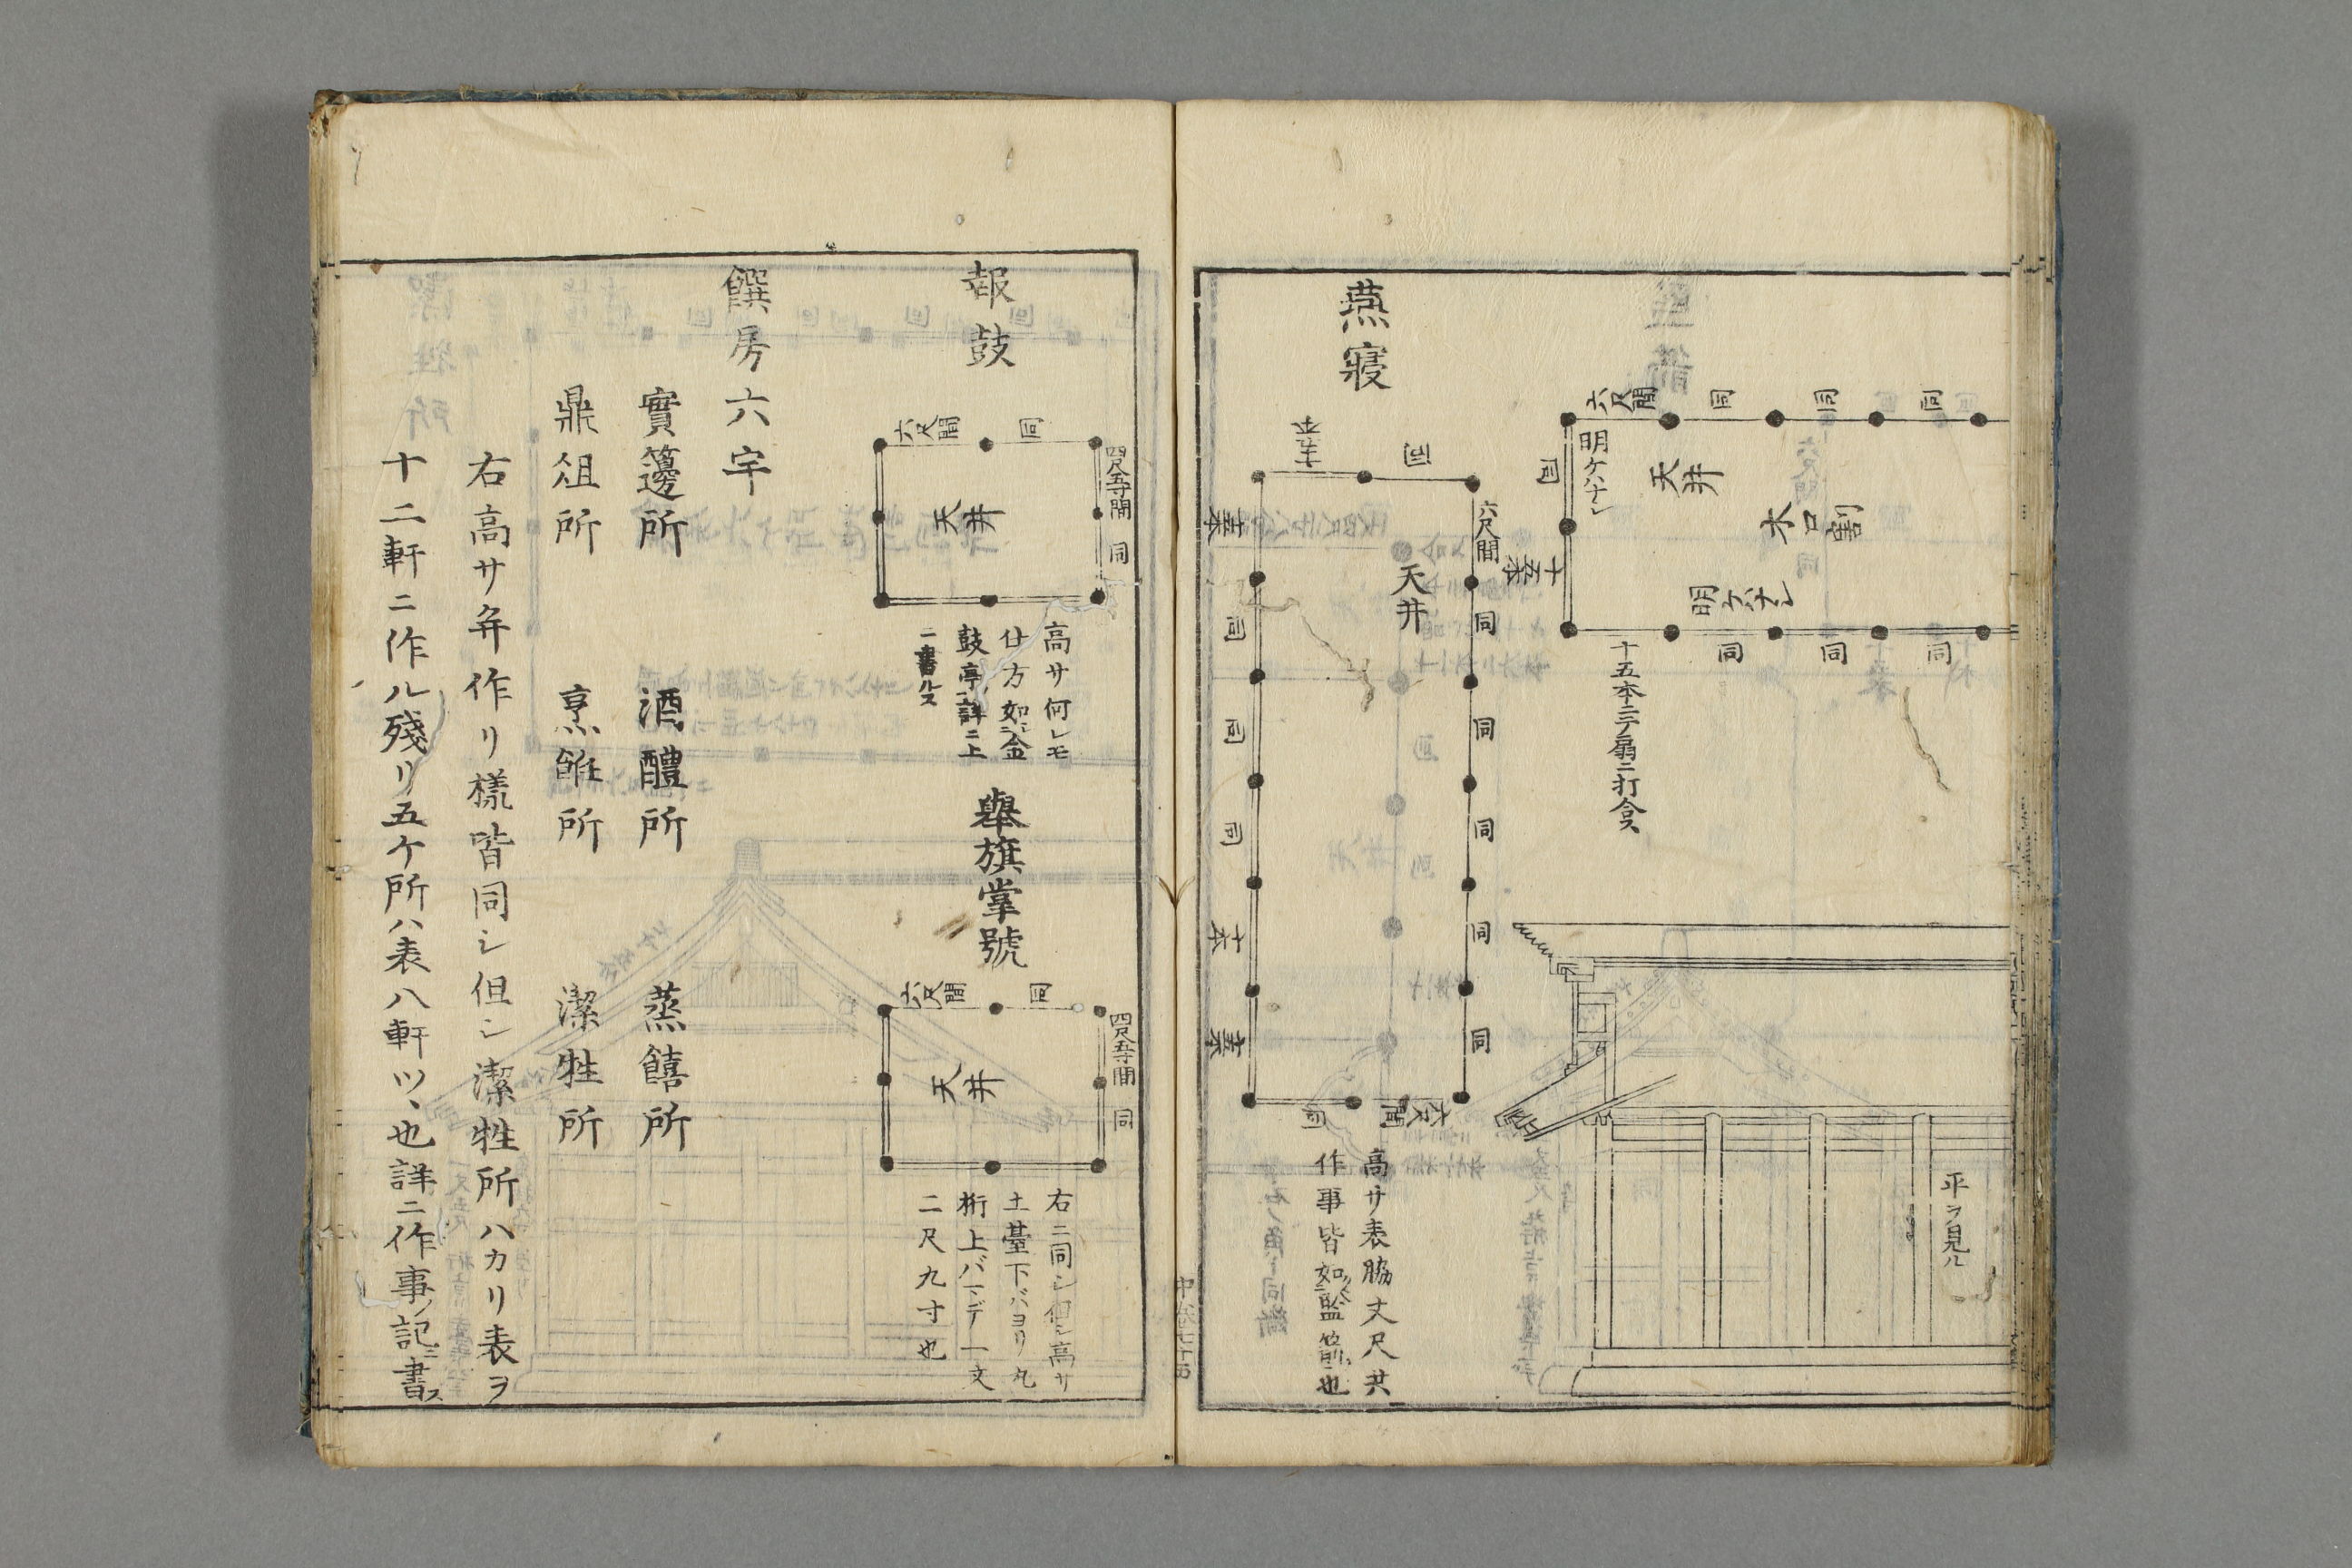 六尺間
同
同
同
明ケハナシ
天井
水口割
同
明ケハナシ
同
同
同
十五本ニテ扇ニ打合ス
平ヲ見ル
燕寢
同
六尺間
天井
同
同
同
同
同
同
同
同
六尺間
同
高サ表脇丈尺共
作事皆如
也
報鼓
六尺間
同
四尺五寸間
同
天井
高サ何レモ
仕方如金
鼓亭詳ニ上
舉旗掌號
六尺間
同
四尺五寸間
同
天井
右ニ同シ但シ高サ
土臺下バヨリ丸
桁上バマデ一丈
二尺九寸也
饌房六宇
實籩所
酒醴所
蒸饎所
鼎俎所
烹飪所
潔牲所
右高サ并作リ樣皆同シ但シ潔牲所ハカリ表ヲ
十二軒ニ作ル殘リ五ケ所ハ表八軒ツヽ也詳ニ作事ノ記ニ書ス